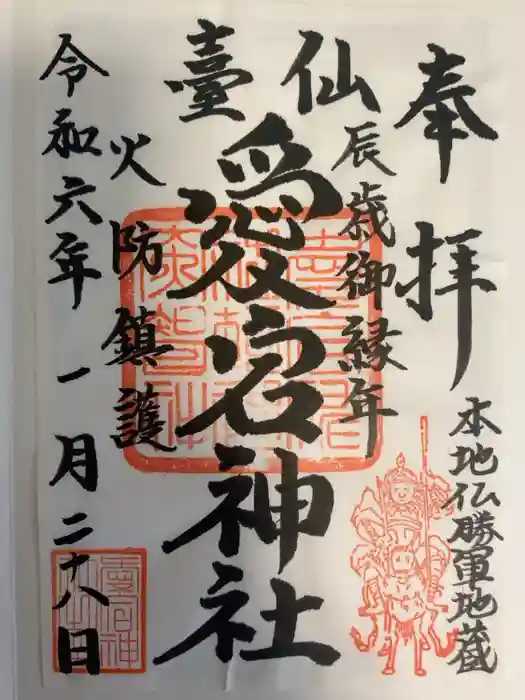 奉拝
本地仏勝軍地蔵
辰歳御縁年
仙臺
愛宕神社
火防鎮護
令和六年一月二十八日